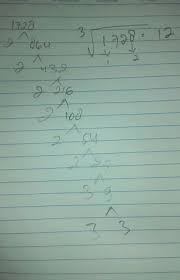 1728
³√1728 = 12
1 2
2 864
2 432
2 216
2 108
2 54
2 27
3 9
3 3